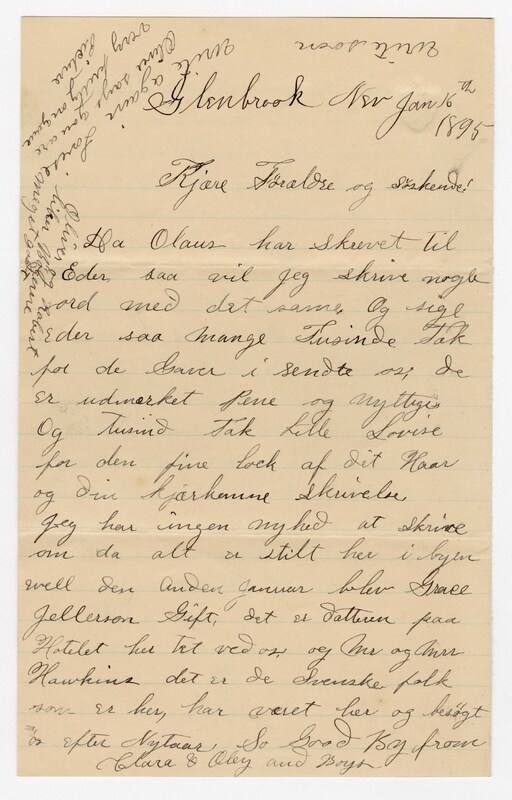 Glenbrook Nev Jan 16th
1895
Kjære Forældre og søskende!
Da Olaus har skrevet til
Eder, saa vil jeg skrive nogle
ord med det same, Og sige
Eder saa mange Tusinde Tak
for de Gaver i sendte os, de
er udmerket Pene og nyttige
Og Tusind Tak Lille Lovise
for den fine lock af dit Haar
og din kjærkomne skrivelse
Jeg har ingen nyhed at skrive
om da alt er stilt her i byen
well den anden Januar blev Grace
Jellerson Gift, det er datteren paa
Hotelet her tet ved os, og Mr og Mrs
Hawkins det er de Svenske folk
som er her, har været her og besøgt
os efter Nytaar, So Good By from
Clara & Oley and Boys
write soon
write again
Oliver says you are
very pretty on your
Picture
Lovise